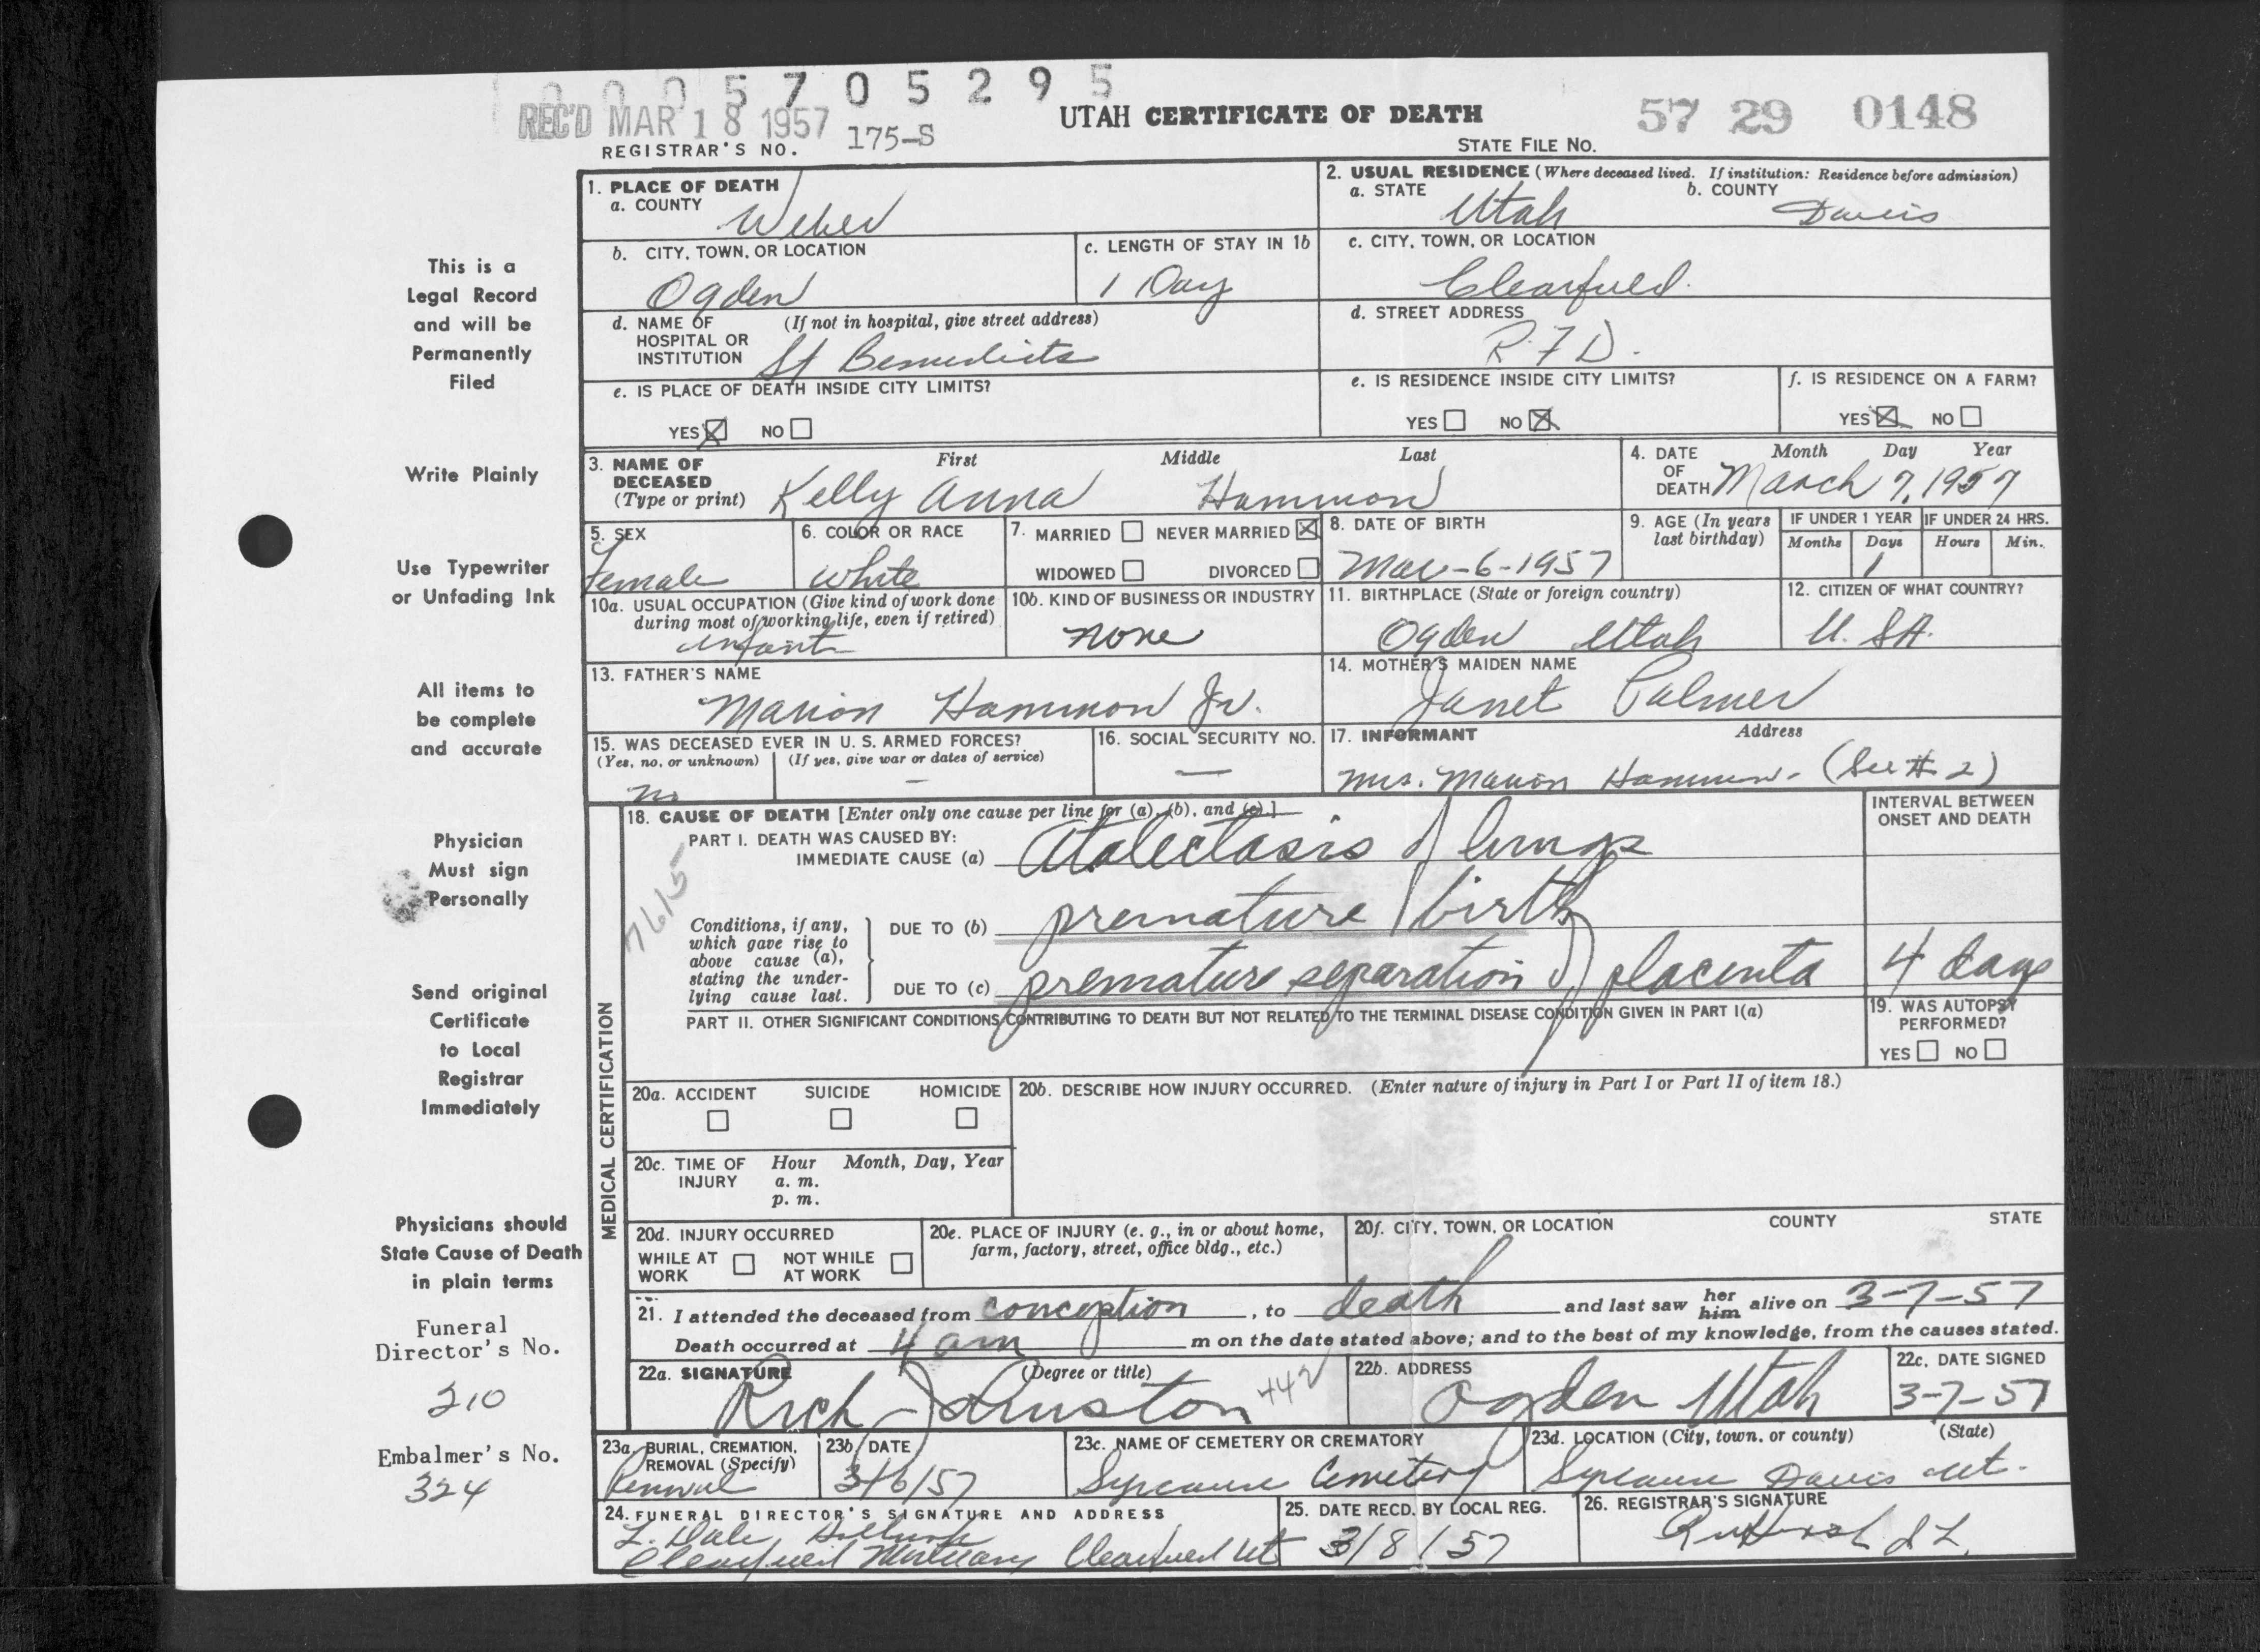 0 0 0 5 7 0 5 2 9 5
REC'D MAR 18 1957
175-S
REGISTRAR'S NO.
UTAH CERTIFICATE OF DEATH
57 29 0148
STATE FILE NO.
This is a
Legal Record
and will be
Permanently
Filed
Write Plainly
Use Typewriter
or Unfading Ink
All items to
be complete
and accurate
Physician
Must sign
Personally
Send original
Certificate
to Local
Registrar
Immediately
Physicians should
State Cause of Death
in plain terms
Funeral
Director's No.
210
Embalmer's No.
324
1. PLACE OF DEATH
a. COUNTY
Weber
2. USUAL RESIDENCE (Where deceased lived. If institution: Residence before admission)
a. STATE Utah b. COUNTY Davis
b. CITY, TOWN, OR LOCATION
Ogden
c. LENGTH OF STAY IN 1b
1 Day
c. CITY, TOWN, OR LOCATION
Clearfield.
d. NAME OF (If not in hospital, give street address)
HOSPITAL OR
INSTITUTION St Benedicts
d. STREET ADDRESS
R.F.D.
e. IS PLACE OF DEATH INSIDE CITY LIMITS?
YES ☒ NO ☐
e. IS RESIDENCE INSIDE CITY LIMITS?
YES ☐ NO ☒
f. IS RESIDENCE ON A FARM?
YES ☒ NO ☐
3. NAME OF
DECEASED
(Type or print)
First Middle Last
Kelly Anna Hammon
4. DATE
OF
DEATH
Month Day Year
March 7, 1957
5. SEX
Female
6. COLOR OR RACE
White
7. MARRIED ☐ NEVER MARRIED ☒
WIDOWED ☐ DIVORCED ☐
8. DATE OF BIRTH
Mar-6-1957
9. AGE (In years
last birthday)
IF UNDER 1 YEAR IF UNDER 24 HRS.
Months Days Hours Min.
1
10a. USUAL OCCUPATION (Give kind of work done
during most of working life, even if retired)
infant
10b. KIND OF BUSINESS OR INDUSTRY
none
11. BIRTHPLACE (State or foreign country)
Ogden Utah
12. CITIZEN OF WHAT COUNTRY?
U.S.A.
13. FATHER'S NAME
Marion Hammon Jr.
14. MOTHER'S MAIDEN NAME
Janet Palmer
15. WAS DECEASED EVER IN U. S. ARMED FORCES?
(Yes, no, or unknown) (If yes, give war or dates of service)
no —
16. SOCIAL SECURITY NO.
—
17. INFORMANT Address
Mrs. Marion Hammon - (See # 2)
MEDICAL CERTIFICATION
7615
18. CAUSE OF DEATH [Enter only one cause per line for (a), (b), and (c).]
PART I. DEATH WAS CAUSED BY:
IMMEDIATE CAUSE (a) Atalectasis of lungs
INTERVAL BETWEEN
ONSET AND DEATH
Conditions, if any,
which gave rise to
above cause (a),
stating the under-
lying cause last.
DUE TO (b) premature birth
DUE TO (c) premature separation of placenta 4 days
PART II. OTHER SIGNIFICANT CONDITIONS CONTRIBUTING TO DEATH BUT NOT RELATED TO THE TERMINAL DISEASE CONDITION GIVEN IN PART I(a)
19. WAS AUTOPSY
PERFORMED?
YES ☐ NO ☐
20a. ACCIDENT SUICIDE HOMICIDE
☐ ☐ ☐
20b. DESCRIBE HOW INJURY OCCURRED. (Enter nature of injury in Part I or Part II of item 18.)
20c. TIME OF Hour Month, Day, Year
INJURY a. m.
p. m.
20d. INJURY OCCURRED
WHILE AT ☐ NOT WHILE ☐
WORK AT WORK
20e. PLACE OF INJURY (e. g., in or about home,
farm, factory, street, office bldg., etc.)
20f. CITY, TOWN, OR LOCATION COUNTY STATE
21. I attended the deceased from conception, to death and last saw her him alive on 3-7-57
Death occurred at 4 am m on the date stated above; and to the best of my knowledge, from the causes stated.
22a. SIGNATURE (Degree or title)
Rich Johnston 442
22b. ADDRESS
Ogden Utah
22c. DATE SIGNED
3-7-57
23a. BURIAL, CREMATION,
REMOVAL (Specify)
Removal
23b. DATE
3/8/57
23c. NAME OF CEMETERY OR CREMATORY
Syracuse Cemetery
23d. LOCATION (City, town, or county) (State)
Syracuse Davis Ut.
24. FUNERAL DIRECTOR'S SIGNATURE AND ADDRESS
L. Dale
Clearfield Mortuary Clearfield Ut
25. DATE RECD. BY LOCAL REG.
3/8/57
26. REGISTRAR'S SIGNATURE